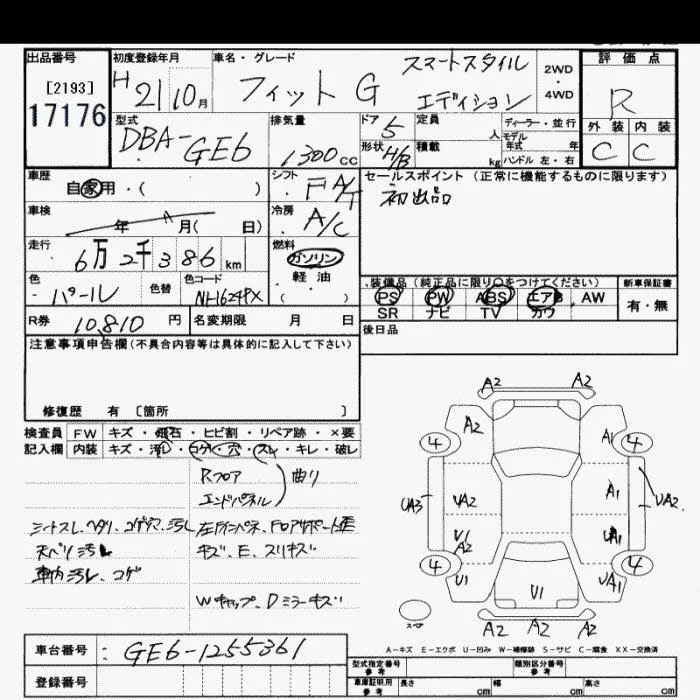 出品番号 初度登録年月 車名・グレード 評価点
[2193] H 21 10月 フィット G スマートスタイル エディション 2WD・4WD R
17176 型式 排気量 ドア 5 定員 人 ディーラー・並行 外装 内装
DBA-GE6 1300cc 形状 H/B 積載 kg モデル年式 年 C C
ハンドル 左・右
車歴 自家用・( ) シフト FA/T セールスポイント (正常に機能するものに限ります)
車検 年 月( 日) 冷房 A/C 初出品
走行 6万2千386km 燃料 ガソリン・軽油 ( )
色 パール 色替 色コード NH624PX 装備品 (純正品に限り○をつけてください) 新車保証書
PS PW ABS エアB AW 有・無
SR ナビ TV カワ
R券 10,810円 名変期限 月 日 後日品
注意事項申告欄(不具合内容等は具体的に記入して下さい)
修復歴 有 〔箇所 〕
検査員 FW キズ・飛石・ヒビ割・リペア跡・×要
記入欄 内装 キズ・汚レ・コゲ・穴・スレ・キレ・破レ
Rフロア
エンドパネル
曲り
シートスレ、ヘタリ、コゲ穴、汚レ
天ベリ汚レ
車内汚レ、コゲ
キズ、E、スリキズ
Wキャップ、Dミラーキズ
A2 A2
A2 A1
4 4
UA3 UA2 A1 UA2
U1 A2 UA1
4 4
U1 UA1
U1
スペア
A2 A2 A2
A-キズ E-エクボ U-凹み W-補修跡 S-サビ C-腐食 XX-交換済
車台番号 : GE6-1255361 型式指定番号 参考 類別区分番号 参考
登録番号 車庫証明用 参考 長さ cm 幅 cm 高さ cm